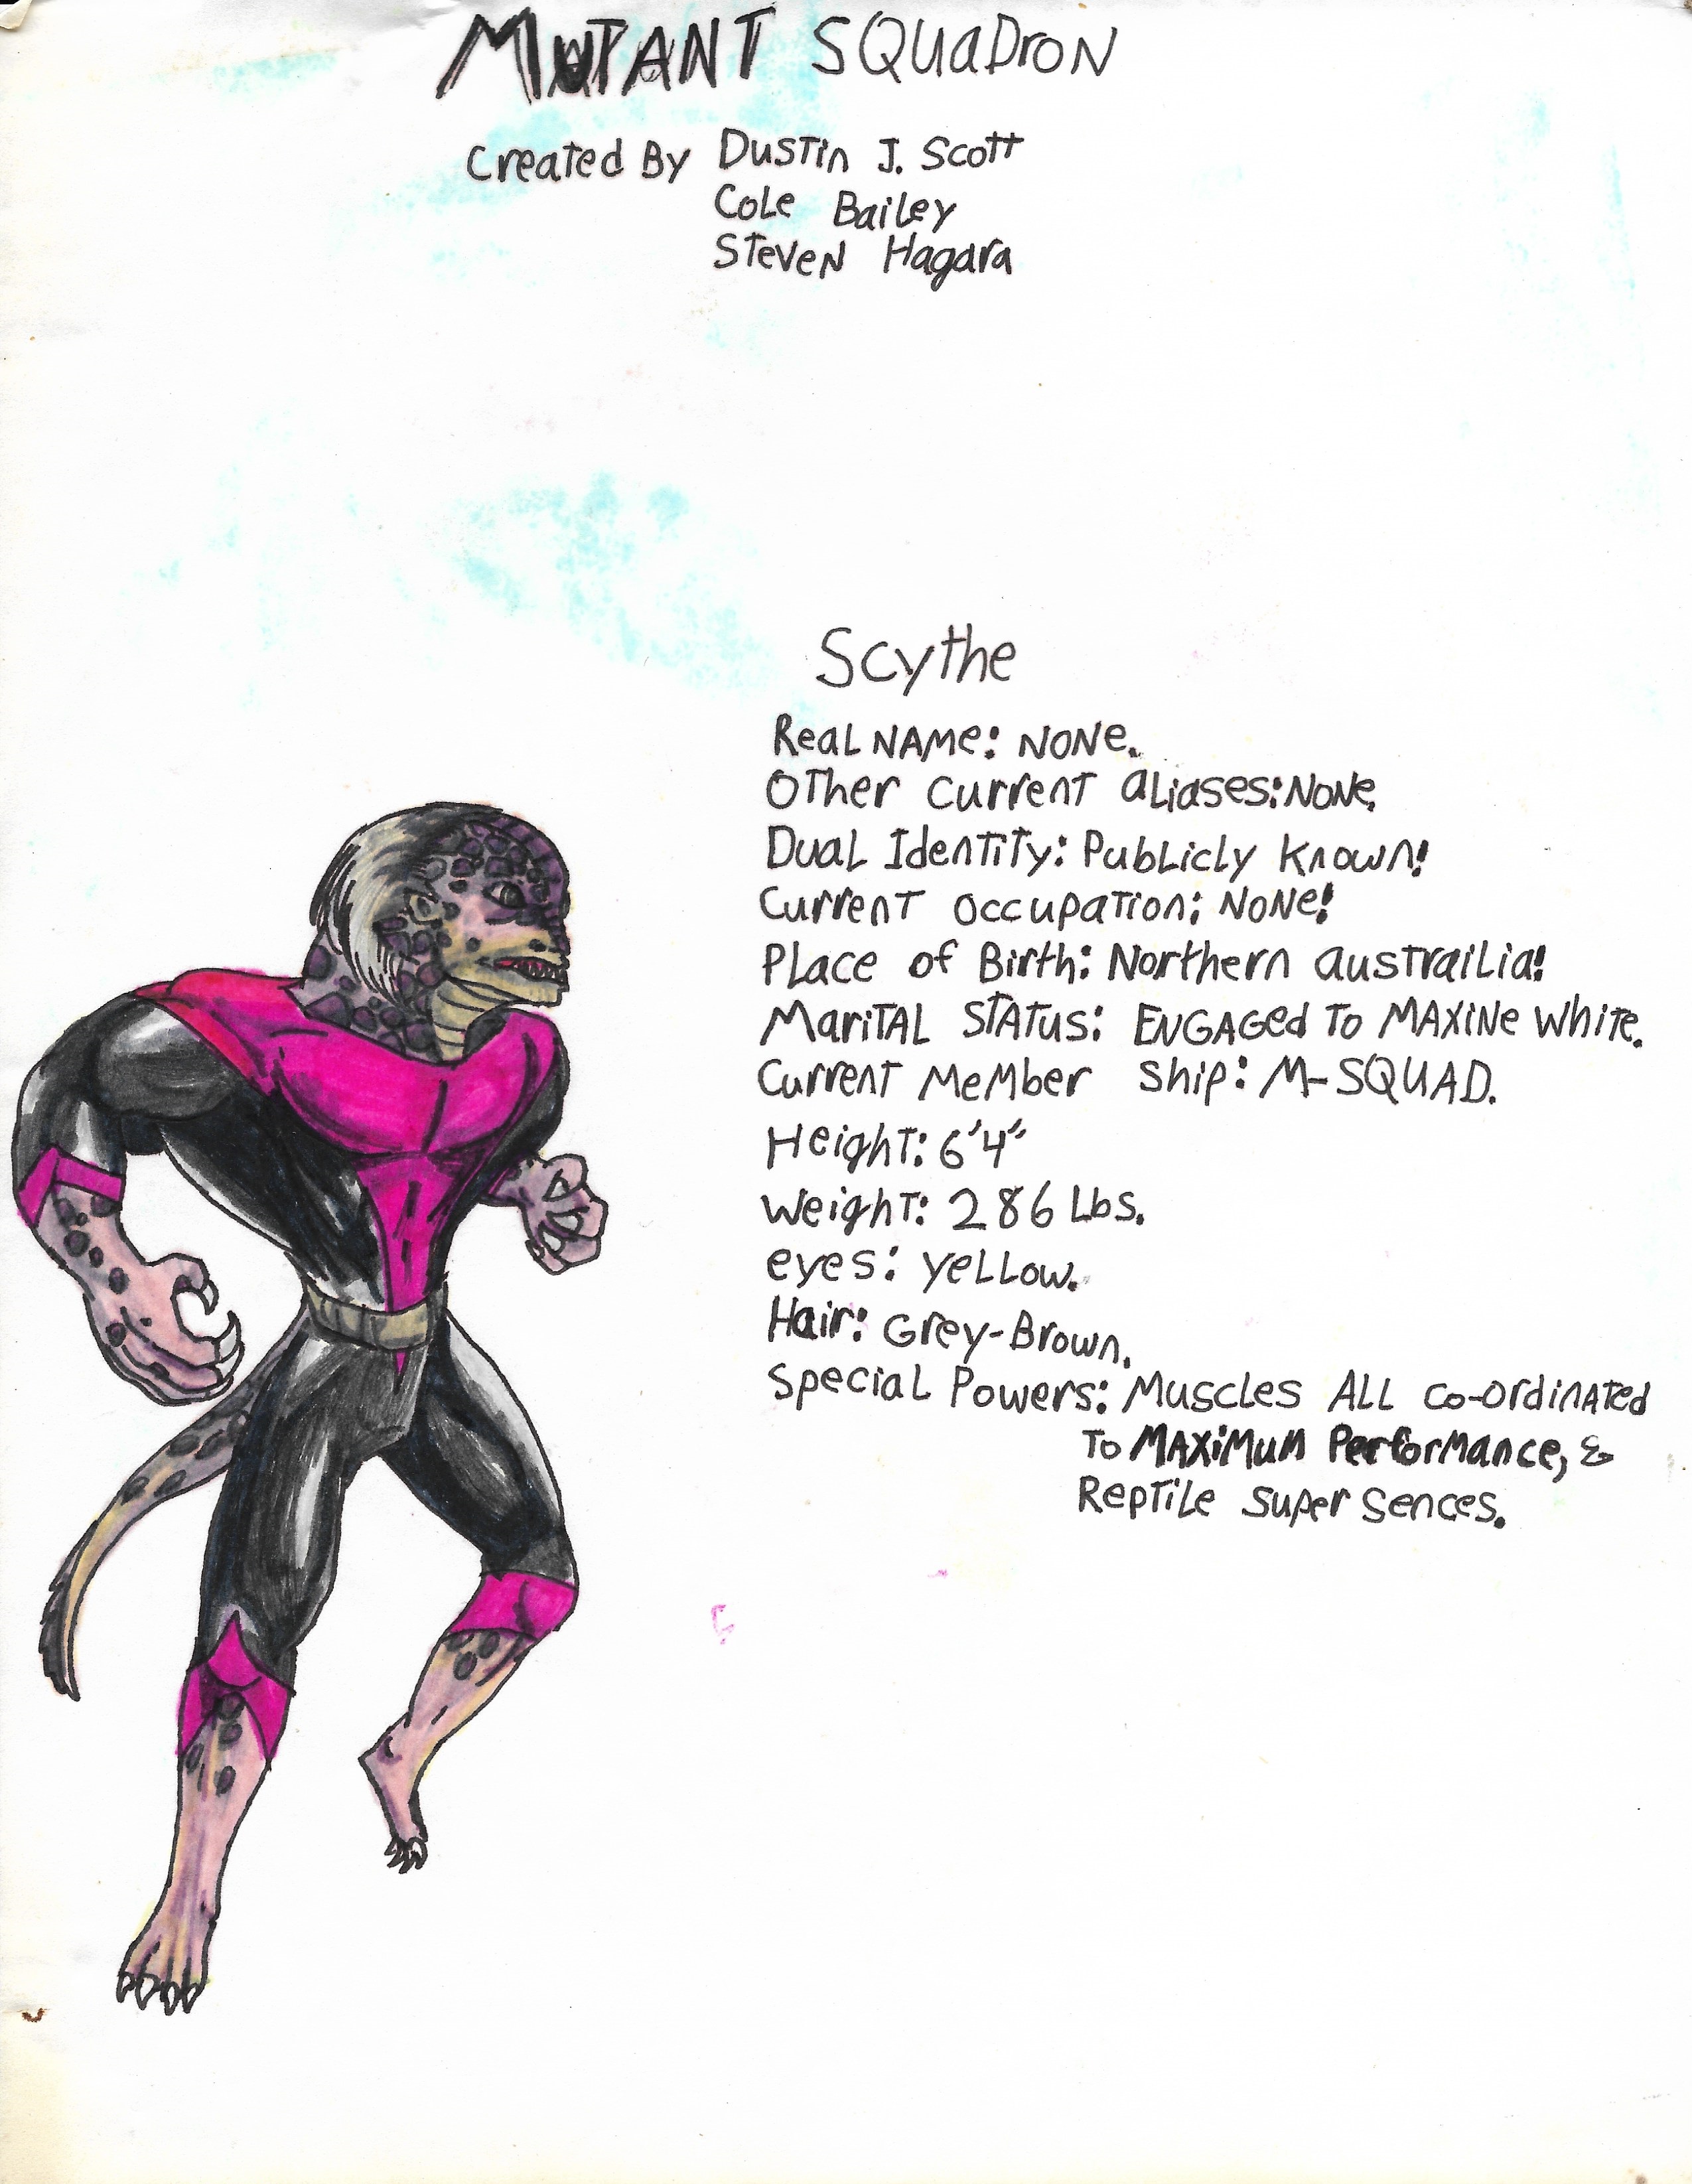 MUTANT SQUADRON
Created By Dustin J. Scott
Cole Bailey
Steven Hagara
Scythe
Real Name: None.
Other Current Aliases: None.
Dual Identity: Publicly Known!
Current Occupation: None!
Place of Birth: Northern Austrailia!
Marital Status: Engaged to Maxine White.
Current Member ship: M-SQUAD.
Height: 6'4"
Weight: 286 Lbs.
eyes: yellow.
Hair: Grey-Brown.
Special Powers: Muscles All Co-ordinated
To Maximum Performance, &
Reptile Super Sences.